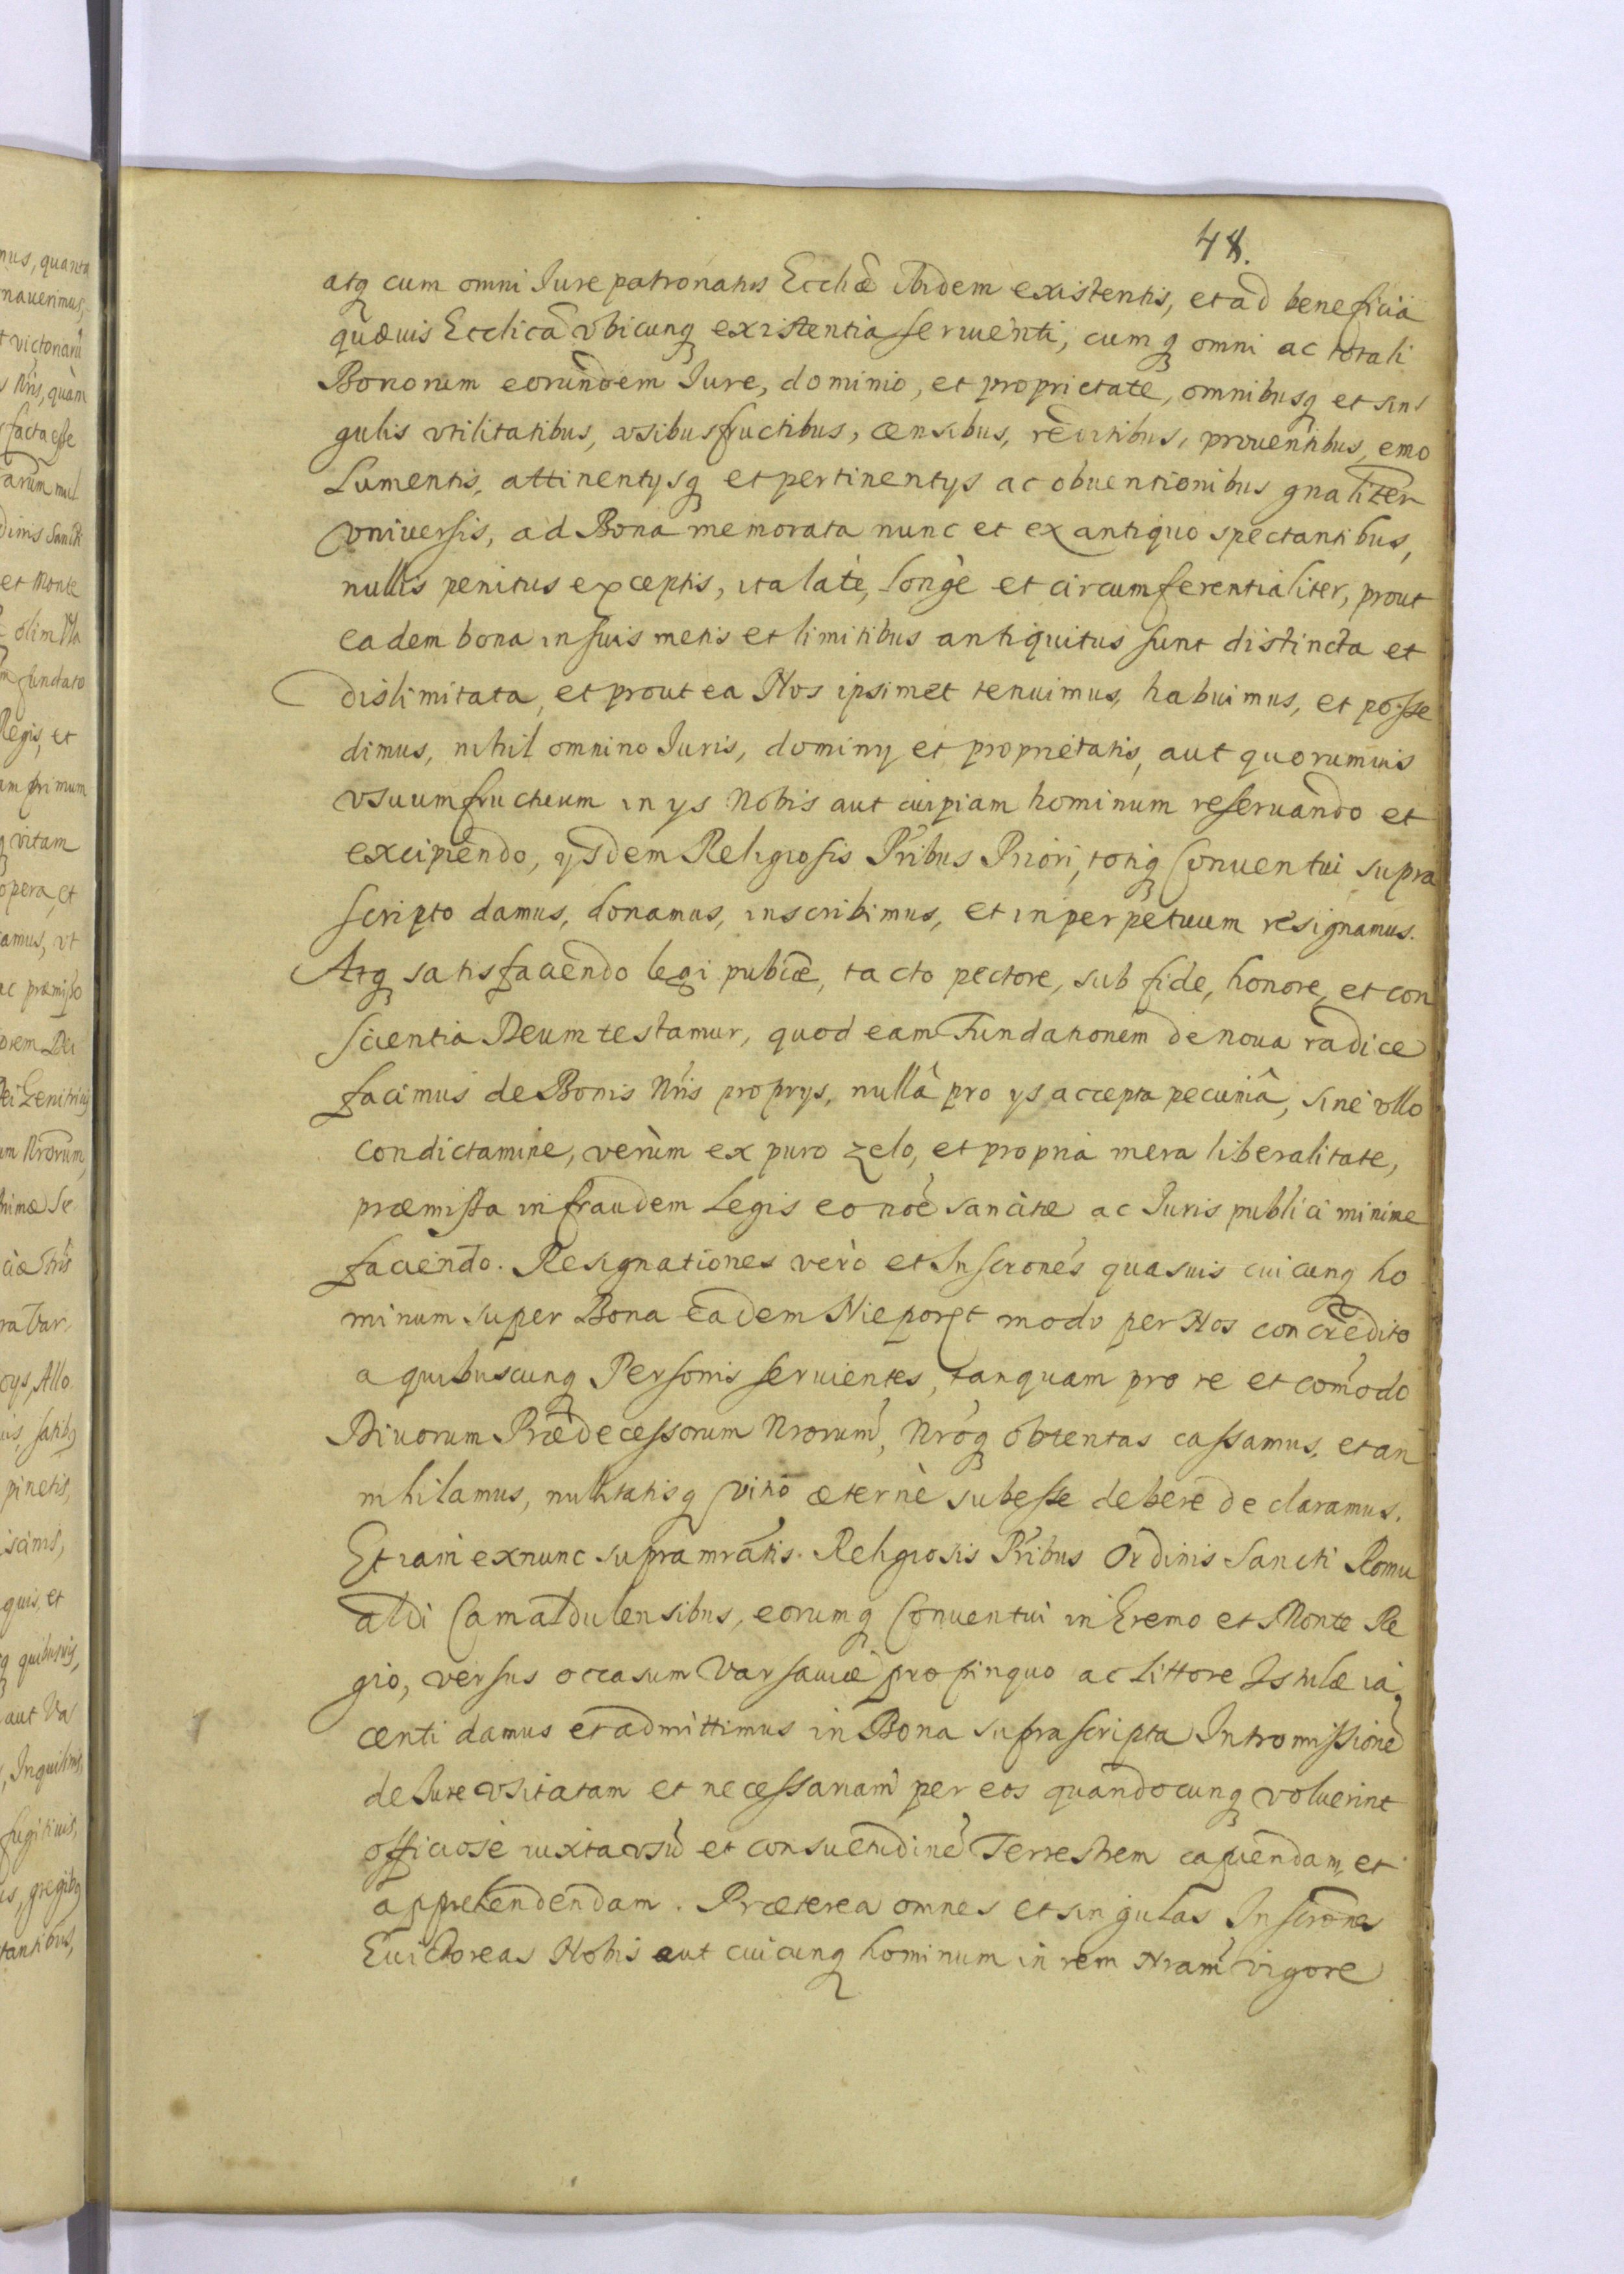 48.
atq cum omni Iure patronatus Eccliæ ibidem existentis, et ad beneficia
quævis Ecclica vbicunq existentia servienti, cumq omni ac totali
Bonorum eorundem Iure, dominio, et proprietate, omnibusq et sin
gulis vtilitatibus, vsibusfructibus, censibus, reditibus, proventibus, emo
lumentis, attinentysq et pertinentys ac obventionibus gnaliter
vniversis, ad Bona memorata nunc et ex antiquo spectantibus,
nullis penitus exceptis, ita latè, longè et circumferentialiter, prout
eadem bona in suis metis et limitibus antiquitus sunt distincta et
dislimitata, et prout ea Nos ipsimet tenuimus, habuimus, et posse
dimus, nihil omnino Iuris, dominy et proprietatis, aut quorumvis
vsuumfructuum in ys Nobis aut cuipiam hominum reservando et
excipiendo, ysdem Religiosis Pribus Priori, totiq Conventui supra
scripto damus, donamus, inscribimus, et in perpetuum resignamus.
Atq satisfaciendo legi publicæ, tacto pectore, sub fide, honore, et con
scientia Deum testamur, quod eam Fundationem de nova radice
facimus de Bonis Nris proprys, nullâ pro ys accepta pecuniâ, sine vllo
condictamine, verùm ex puro zelo, et propria mera liberalitate,
præmissa in fraudem Legis eo noe sancitæ ac Iuris publici minime
faciendo. Resignationes verò et Inscrones quasvis cuicunq ho
minum super Bona eadem Nieporęt modo per Nos concredito
a quibuscunq Personis servientes, tanquam pro re et comodo
Divorum Prædecessorum Nrorum, Nroq obtentas cassamus, et an
nihilamus, nullitatisq vitio æternè subesse debere declaramus.
Et iam exnunc supramratis. Religiosis Pribus Ordinis Sancti Romu
aldi Camaldulensibus, eorumq Conventui in Eremo et Monte Re
gio, versus occasum Varsaviæ propinquo ac littore Istulæ ia
centi damus et admittimus in Bona suprascripta Intromissione
de Iure vsitatam et necessariam per eos quandocunq voluerint
officiosè iuxta vsu et consuetudine Terrestrem capiendam et
apprehendendam. Præterea omnes et singulas Inscrones
Evictoreas Nobis aut cuicunq hominum in rem Nram vigore
mus, quanta
naverimus,
t victoriaru
Nris, quàm
facta esse
arum mul
dinis Sancti
et Monte
olim Vla
fundato
Regis, et
am primum
q vitam
opera, et
amus, vt
ac præmisso
orem Dei
ei Genitricis
um Nrorum,
nimæ Se
ra Var
oys, Allo
is, satibq
pinetis,
iscinis,
quis, et
q quibusvis,
aut Va
, Inquilinis,
fugitivis,
is, gregibq
tantibus,